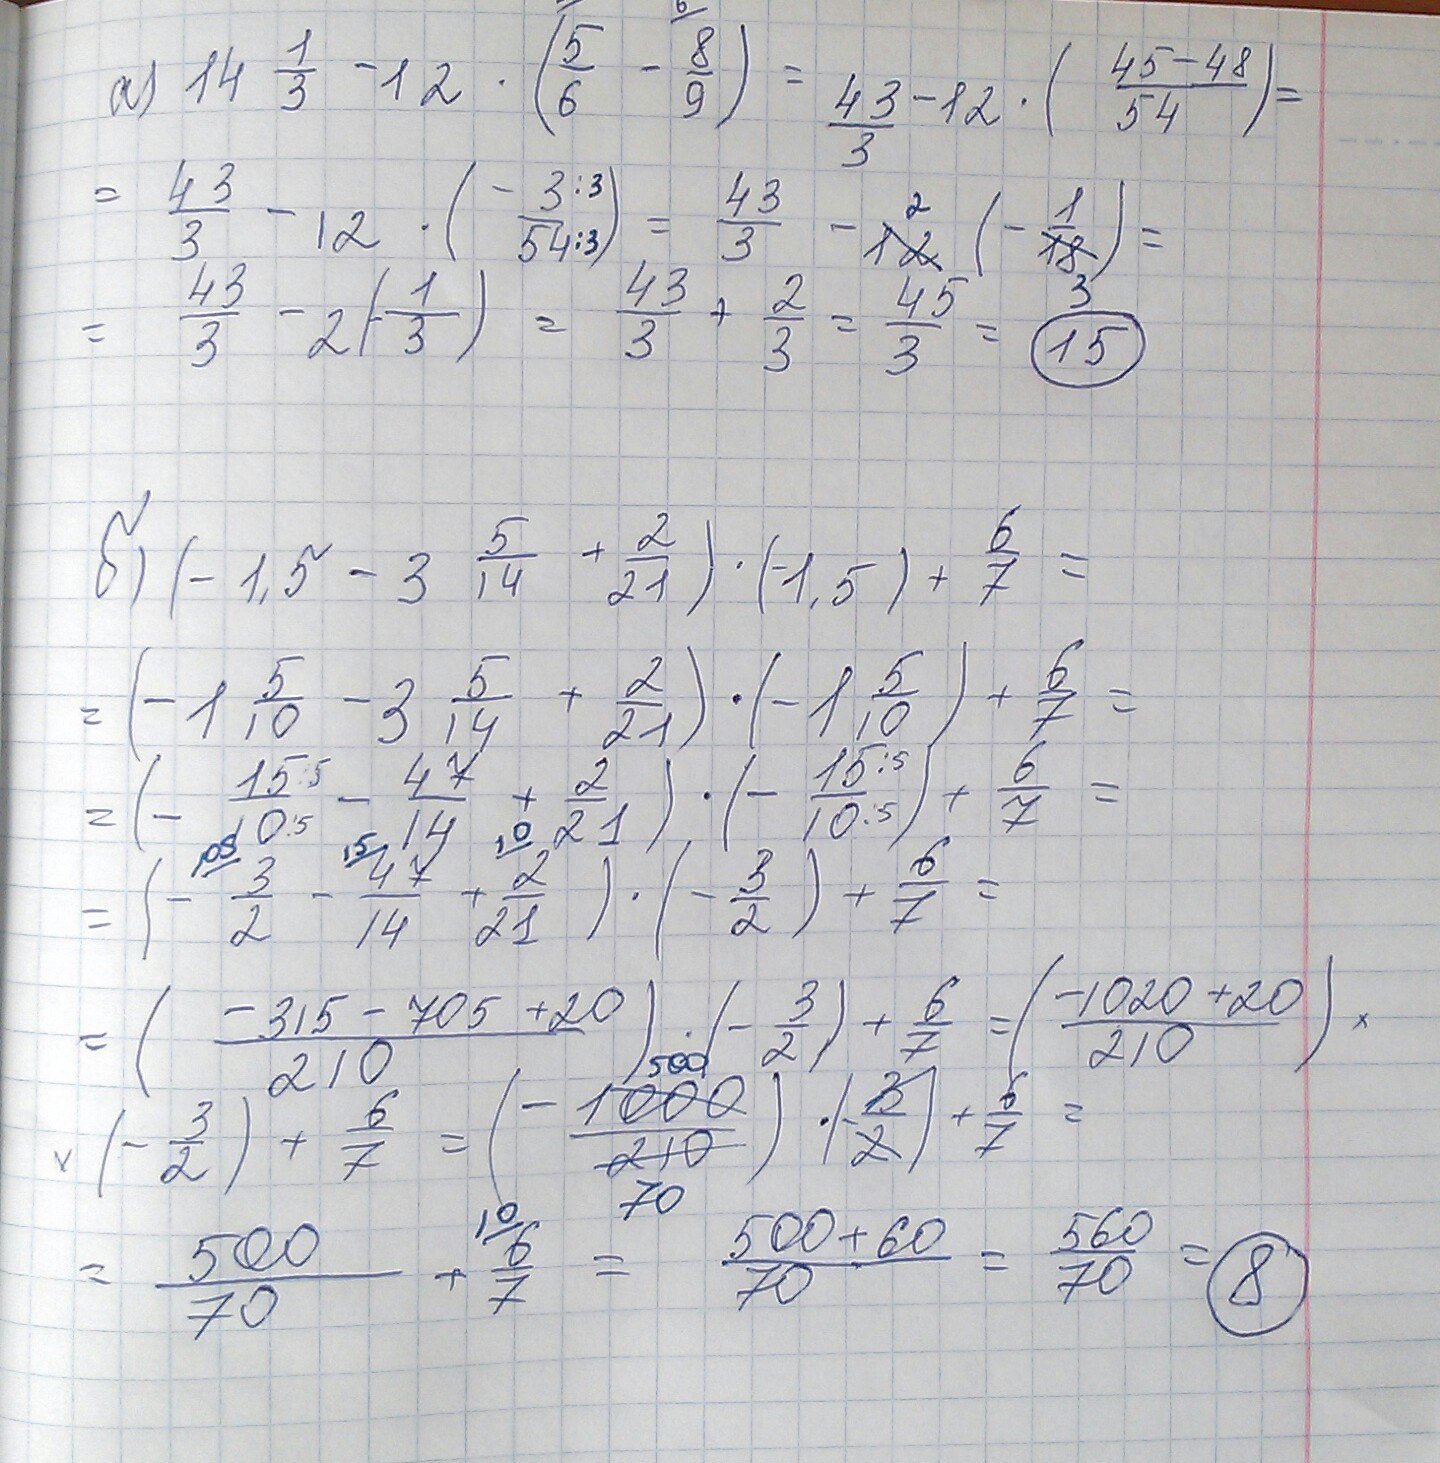 а) 14 1/3 - 12 · (5/6 - 8/9) = 43/3 - 12 · ((45-48)/54) =
= 43/3 - 12 · (- 3:3/54:3) = 43/3 - 12 2 (- 1/18 3) =
= 43/3 - 2(-1/3) = 43/3 + 2/3 = 45/3 = 15
б) (- 1,5 - 3 5/14 + 2/21) · (-1,5) + 6/7 =
= (- 1 5/10 - 3 5/14 + 2/21) · (- 1 5/10) + 6/7 =
= (- 15:5/10:5 - 47/14 + 2/21) · (- 15:5/10:5) + 6/7 =
= (- 105 3/2 - 15 47/14 + 10 2/21) · (- 3/2) + 6/7 =
= ((-315 - 705 + 20)/210) · (- 3/2) + 6/7 = ((-1020 + 20)/210) ×
× (- 3/2) + 6/7 = (- 1000 500/210 70) · (- 3/2) + 6/7 =
= 500/70 + 10 6/7 = (500 + 60)/70 = 560/70 = 8